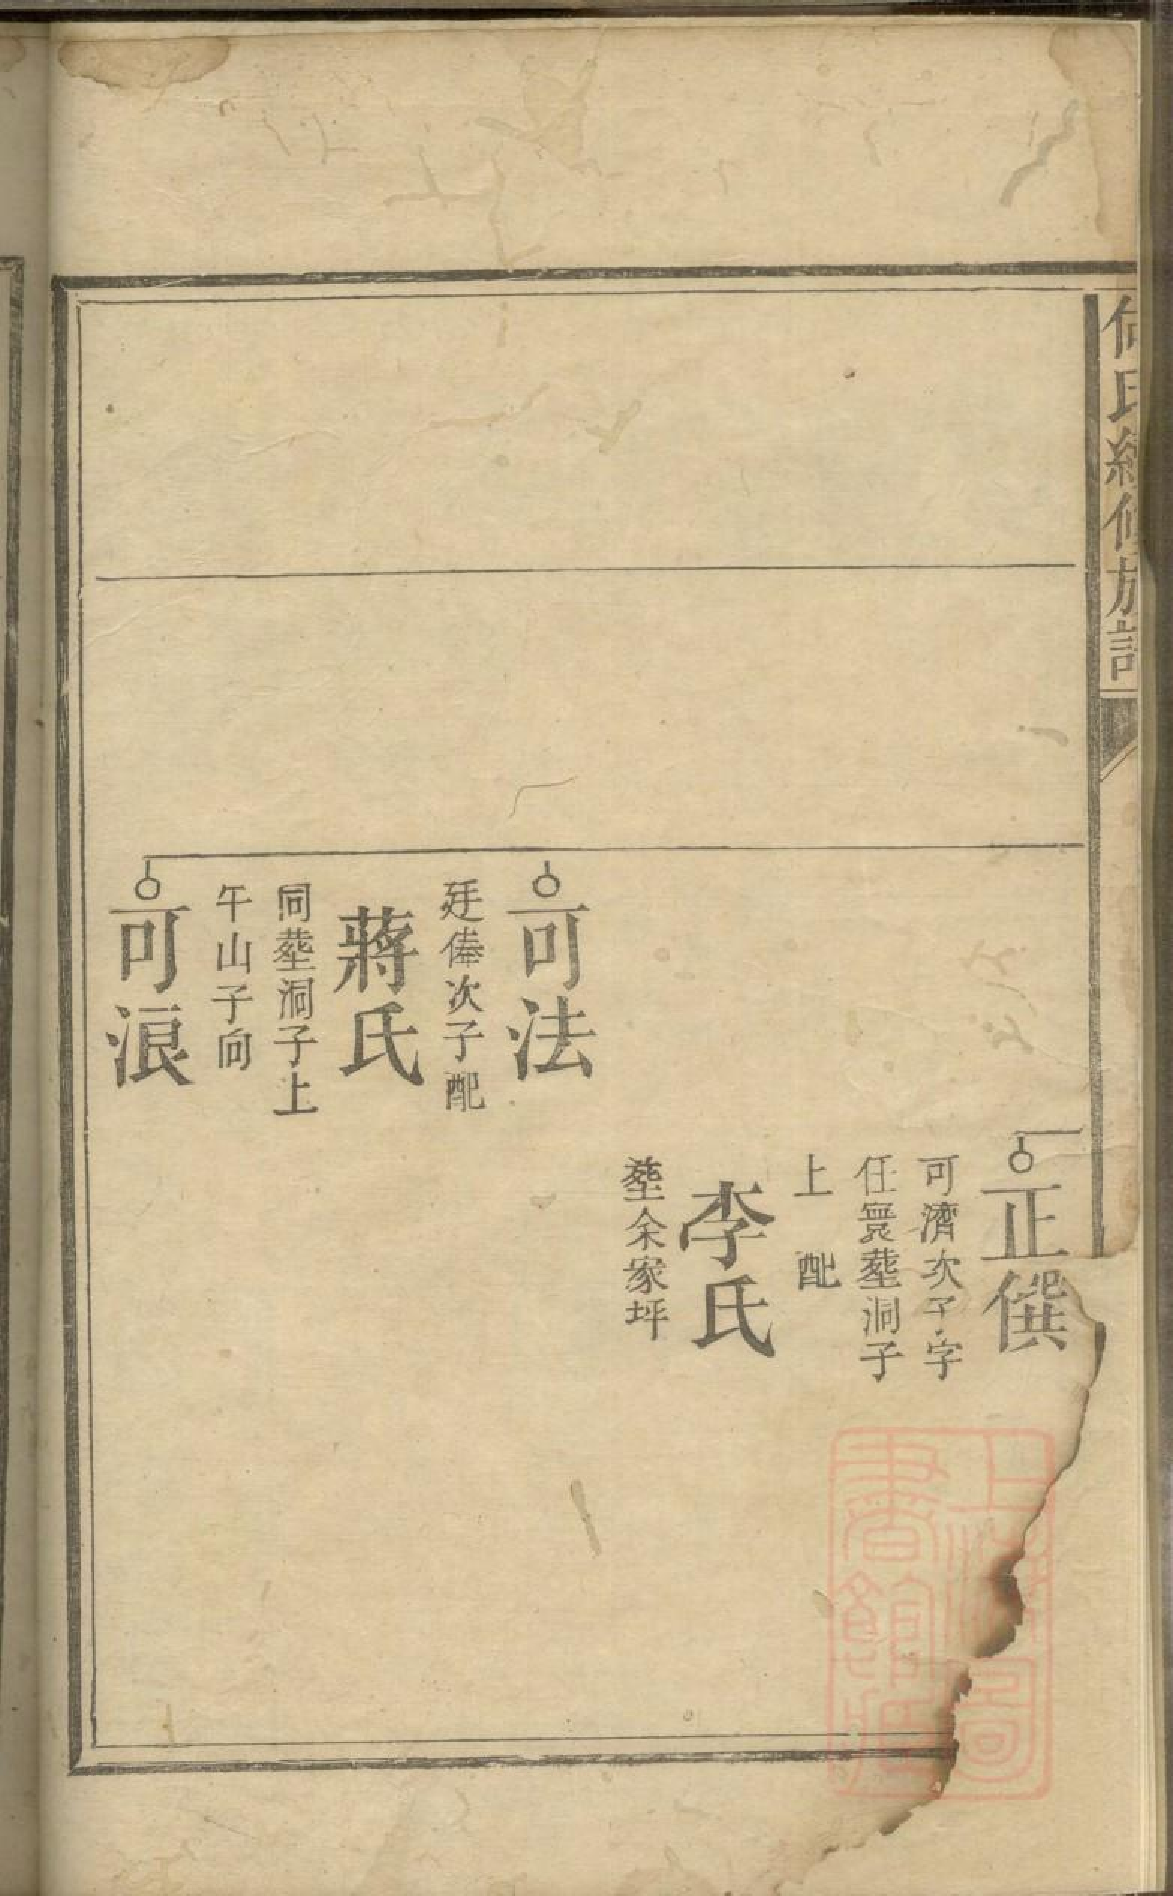 何氏續修族譜
正僎
可濟次子字
任寰塟洞子
上 配
李氏
塟余家坪
可法
廷俸次子配
蔣氏
同塟洞子上
午山子向
可浪
上海圖
書館藏